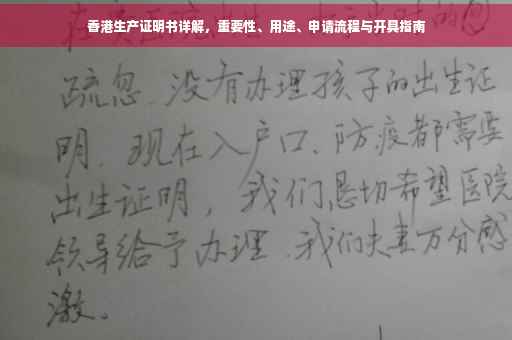 香港生产证明书详解，重要性、用途、申请流程与开具指南
疏忽、没有办理孩子的出生证
明、现在入户口、防疫都需要
出生证明，我们恳切希望医院
领导给予办理、我们夫妻万分感
激。